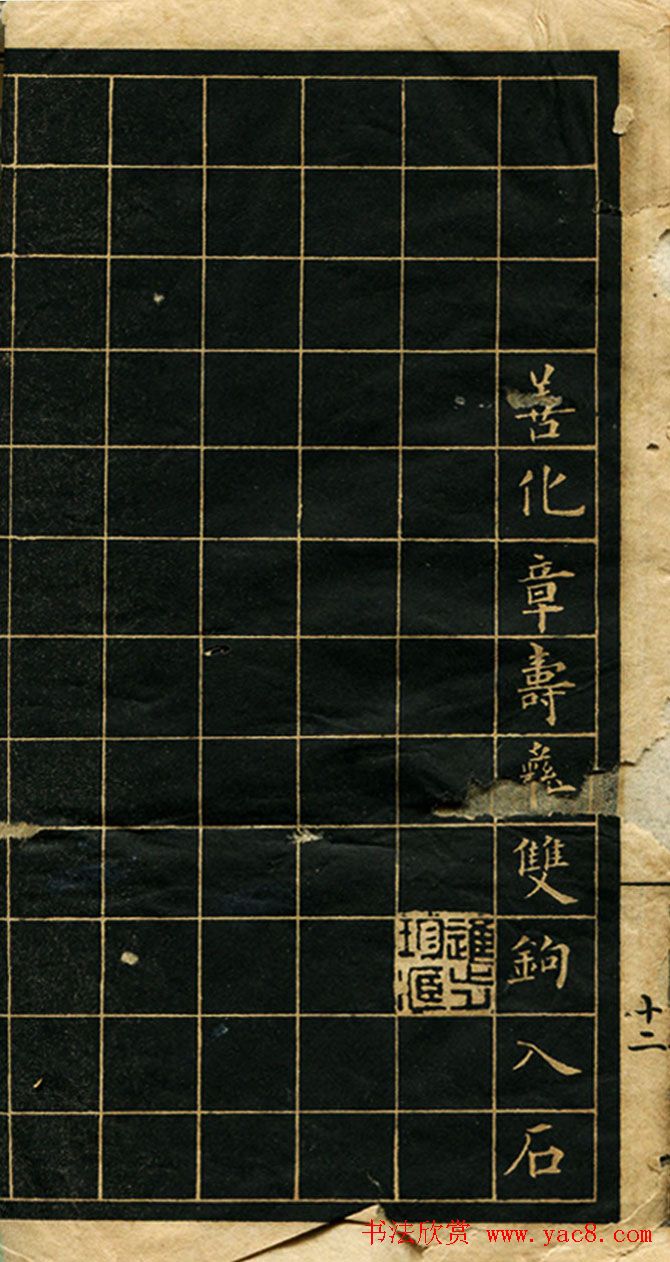 善化章壽彝雙鉤入石
十二
书法欣赏 www.yac8.com